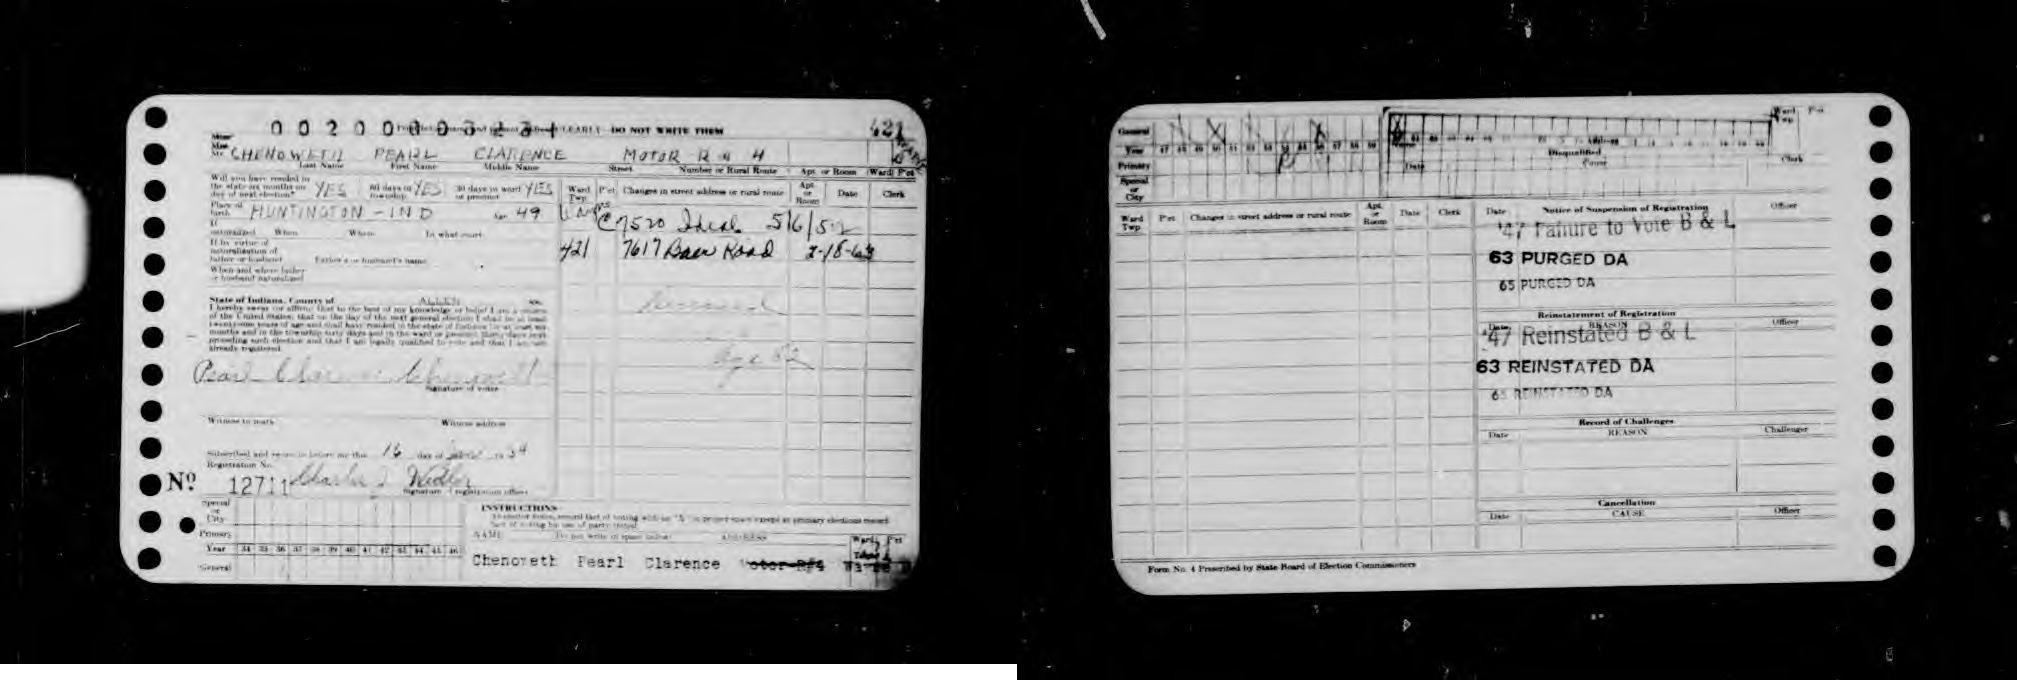 421
DO NOT WRITE THEM
CHENOWETH PEARL CLARENCE MOTOR R # 4
Last Name First Name Middle Name Street Number or Rural Route Apt. or Room Ward Pct
Will you have resided in
the state six months on YES 60 days in YES 30 days in ward YES
day of next election? township or precinct
Ward Twp. Pct Changes in street address or rural route Apt. or Room Date Clerk
Place of birth HUNTINGTON - IND Age 49
7520 Ideal 5/6/52
If naturalized When Where In what court
421 7617 Baer Road 2-18-63
If by virtue of
naturalization of
father or husband Father's or husband's name
When and where father
or husband naturalized
State of Indiana, County of ALLEN ss.
I hereby swear (or affirm) that to the best of my knowledge or belief I am a citizen
of the United States; that on the day of the next general election I shall be at least
twenty-one years of age and shall have resided in the state of Indiana for at least six
months and in the township sixty days and in the ward or precinct thirty days next
preceding such election and that I am legally qualified to vote and that I am not
already registered.
Age 82
Pearl Clarence Chenoweth
Signature of voter
Witness to mark Witness address
Subscribed and sworn to before me this 16 day of 19 34
Registration No.
No 12711 Charles
Signature of registration officer
Special or City
Primary
Year 34 35 36 37 38 39 40 41 42 43 44 45 46
General
INSTRUCTIONS
NAME Do not write in space below ADDRESS Ward Pct
Chenoweth Pearl Clarence Motor R#4 Wayne
General
Year 47 48 49 50 51 52 53 54 55 56 57 58 59
Primary
Special or City
Ward Twp. Pct
Disqualified
Date Cause Clerk
Ward Twp. Pct Changes in street address or rural route Apt. or Room Date Clerk
Date Notice of Suspension of Registration Officer
'47 Failure to Vote B & L
63 PURGED DA
65 PURGED DA
Reinstatement of Registration
Date REASON Officer
'47 Reinstated B & L
63 REINSTATED DA
65 REINSTATED DA
Record of Challenges
Date REASON Challenger
Cancellation
Date CAUSE Officer
Form No. 4 Prescribed by State Board of Election Commissioners